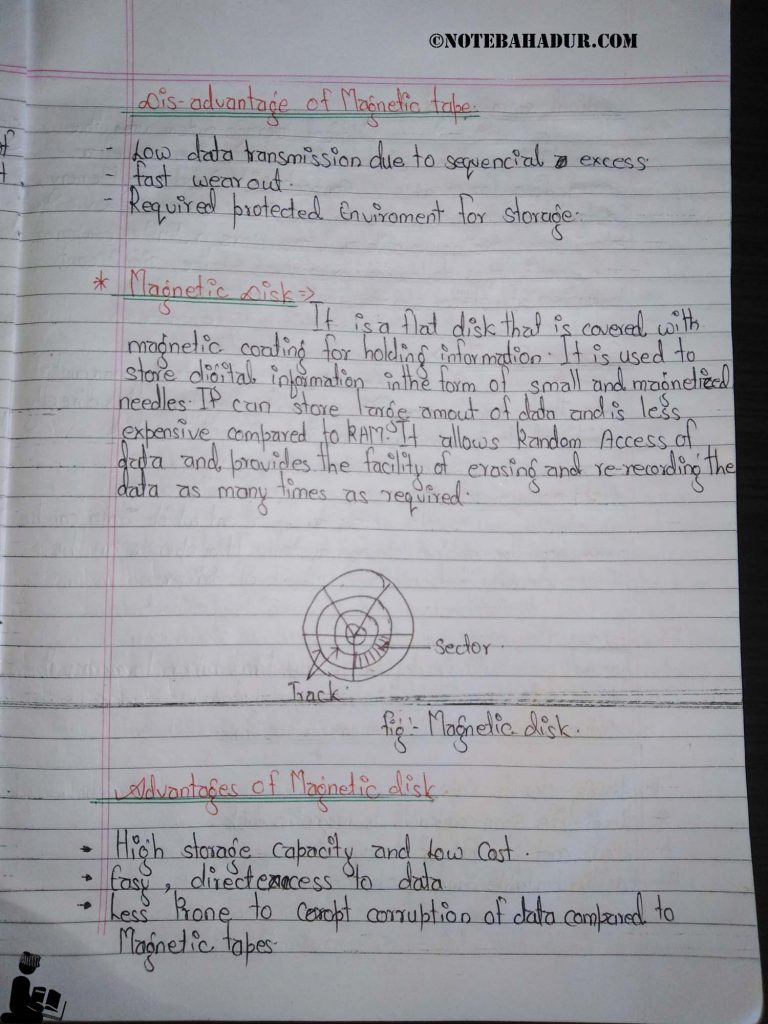 ©NOTEBAHADUR.COM
Dis-advantage of Magnetic tape.
- Low data transmission due to sequencial excess.
- fast wearout.
- Required protected Enviroment for storage.
* Magnetic Disk =>
It is a flat disk that is covered with
magnetic coating for holding information. It is used to
store digital information in the form of small and magnetized
needles. It can store large amout of data and is less
expensive compared to RAM. It allows Random Access of
data and provides the facility of erasing and re-recording the
data as many times as required.
Sector.
Track.
fig:- Magnetic disk.
Advantages of Magnetic disk
High storage capacity and low cost.
Easy, direct access to data
Less Prone to corruption of data compared to
Magnetic tapes.